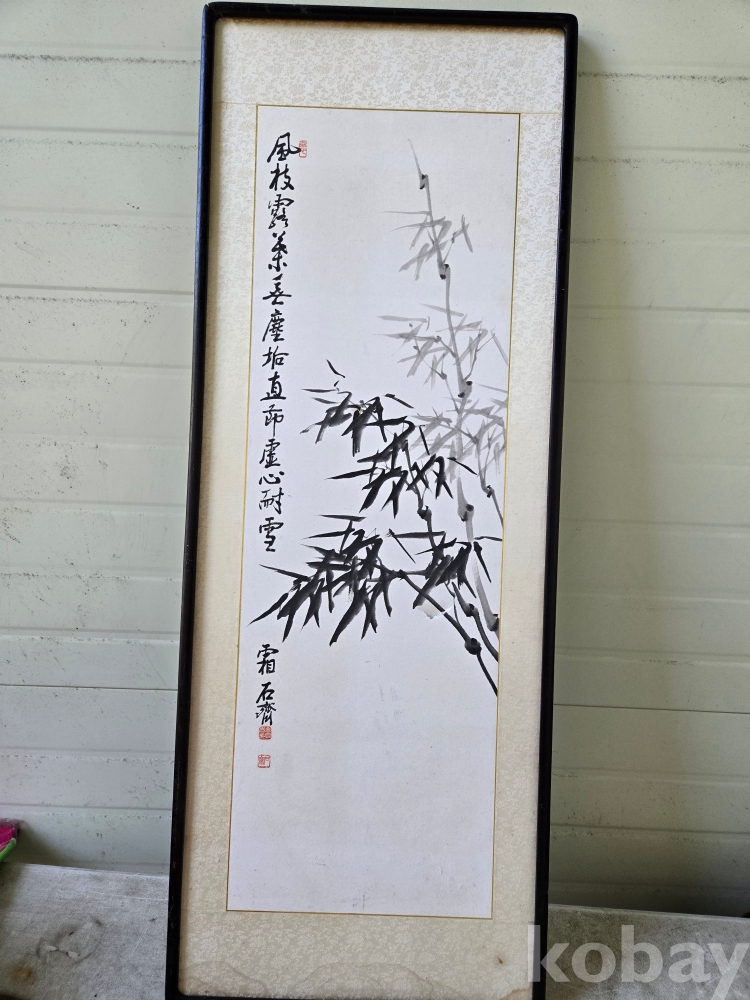 風枝露葉無塵垢直節虛心耐雪
霜石濟
kobay